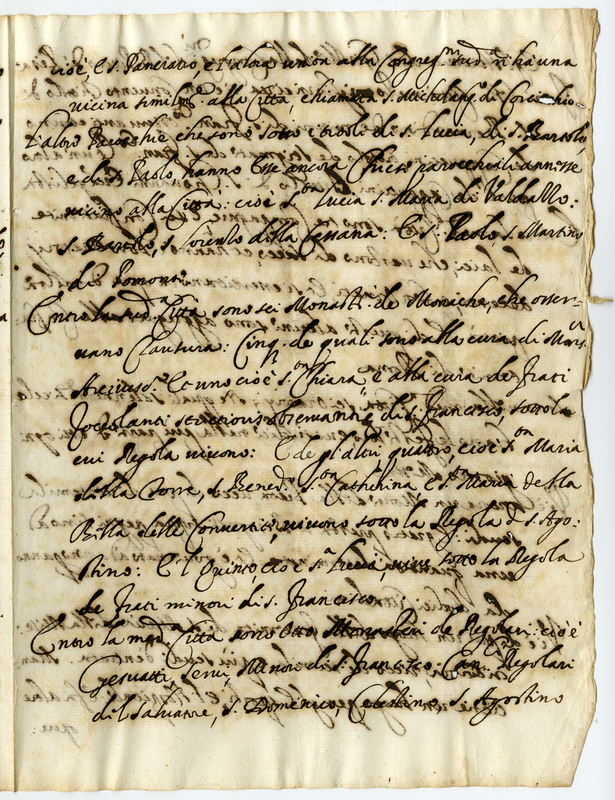 cioè, e S. Pancratio, e l'altra unita alla Congreg.ne sud.a n'ha una
vicina simil.e alla Città, chiamata S. Michelang.o di
L'altre Parochie che sono sotto i titoli di S. Lucia, di S. Bartolo
e di S. Paolo, hanno esse ancora Chiese parochiali annesse
vicino alla Città: cioè S.ta Lucia S. Maria di
S. Bartolo, S. Lorenzo della E S. Paolo S. Martino
di
Entro la sud.a Città sono sei Monast.i de Monache, che osser-
vano Clausura: Cinq. de quali sono alla cura di Mons.r
Et uno cioè S.ta Chiara è alla cura de frati
Zoccolanti strictioris observantię di S. Francesco, sotto la
cui Regola vivono: E de gl'altri quattro, cioè S.ta Maria
della Torre, S. Bened.o S.ta Catherina e S.ta Maria della
delle Convertite, vivono sotto la Regola di S. Ago-
stino: E l'Quinto, cioè S.ta Lucia, vive sotto la Regola
de frati minori di S. Francesco.
Entro la med.a Città sono otto Monasteri de Regolari: cioè
Gesuatti, Servi, Minori di S. Francesco: Can.ci Regolari
del Salvatore, S. Domenico, Celestino, S. Agostino